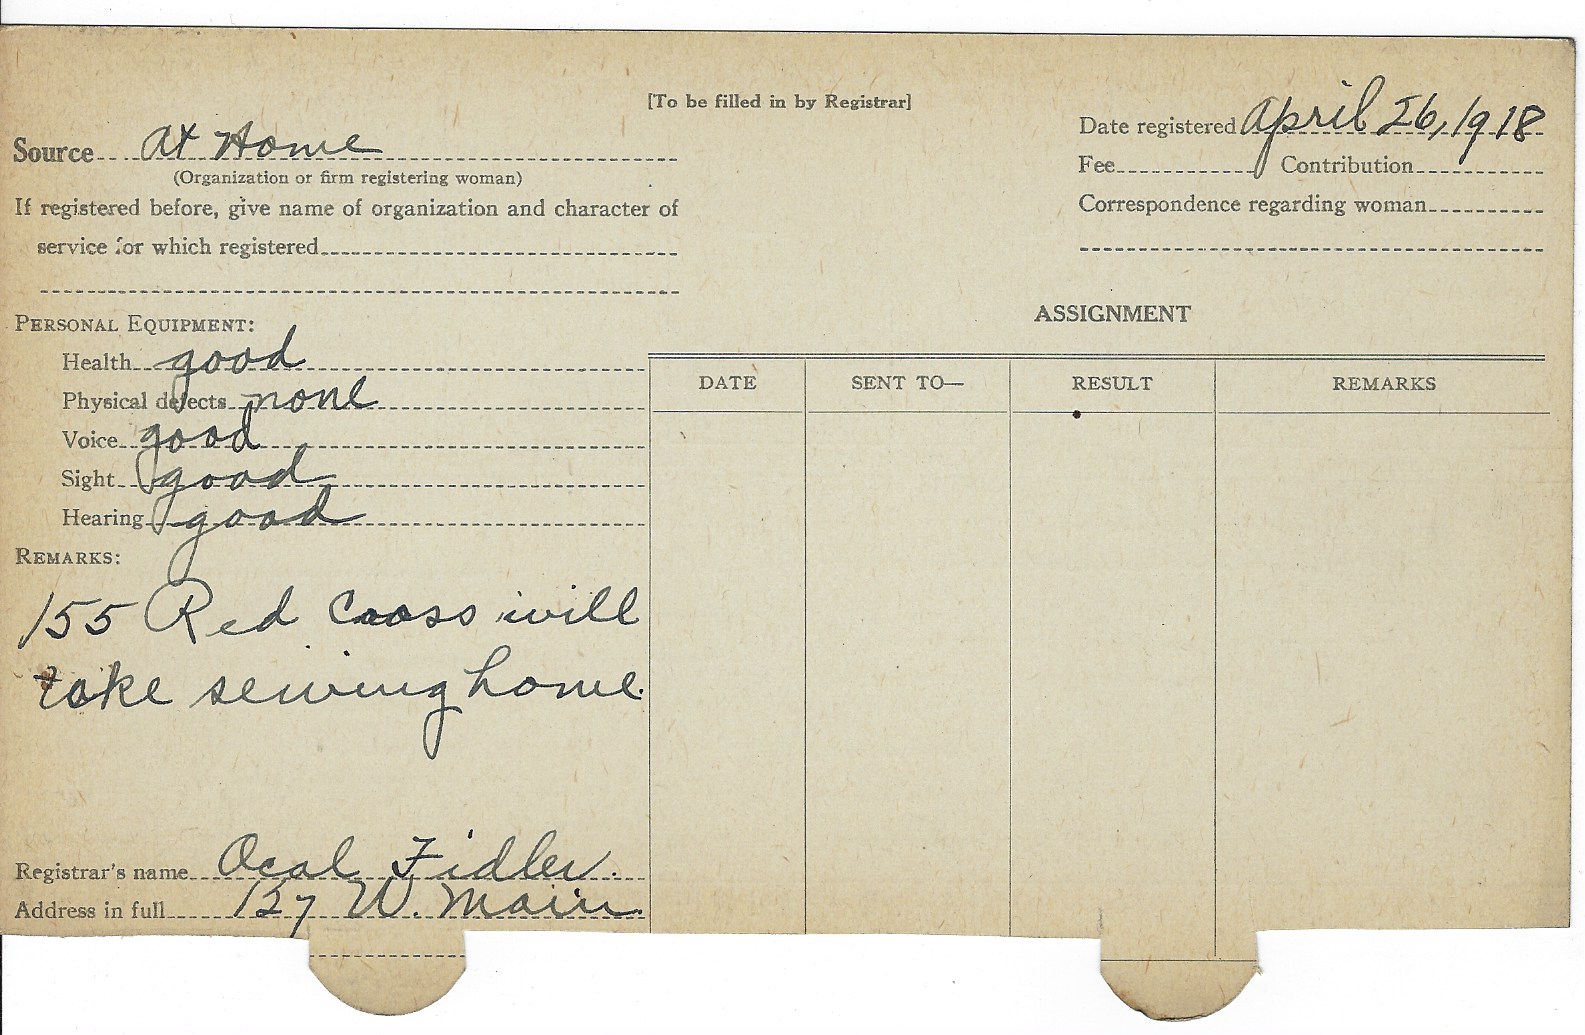 [To be filled in by Registrar]
Source At Home
(Organization or firm registering woman)
If registered before, give name of organization and character of
service for which registered
PERSONAL EQUIPMENT:
Health good
Physical defects none
Voice good
Sight good
Hearing good
REMARKS:
155 Red Cross will
take sewing home.
Registrar's name Ocal Fidler.
Address in full 127 W. Main.
Date registered April 26, 1918
Fee Contribution
Correspondence regarding woman
ASSIGNMENT
DATE SENT TO— RESULT REMARKS